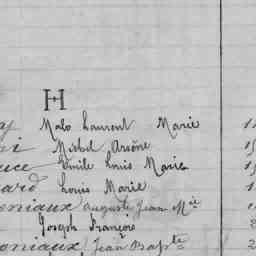 H
Malo Laurent Marie
Michel Arsène
Emile Louis Marie
Louis Marie
auguste Jean Mie
Joseph François
oniaux, Jean Bapte